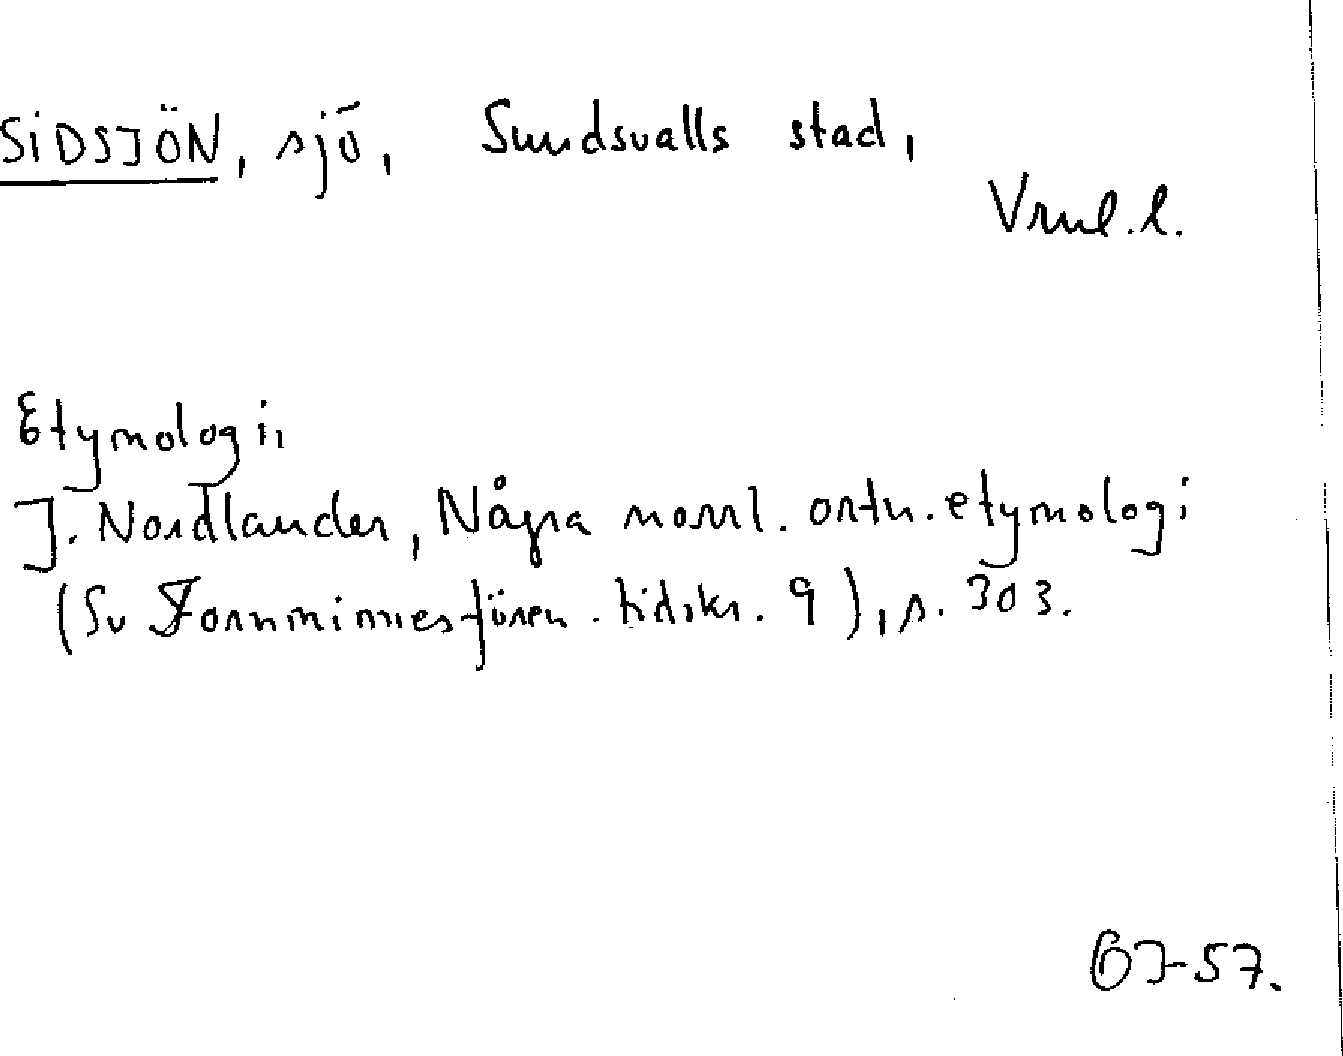 SIDSJÖN, sjö, Sundsvalls stad,
Vrml.l.
Etymologi,
J. Nordlander, Några norrl. ortn. etymologi
(Sv Fornminnesfören. tidskr. 9), s. 303.